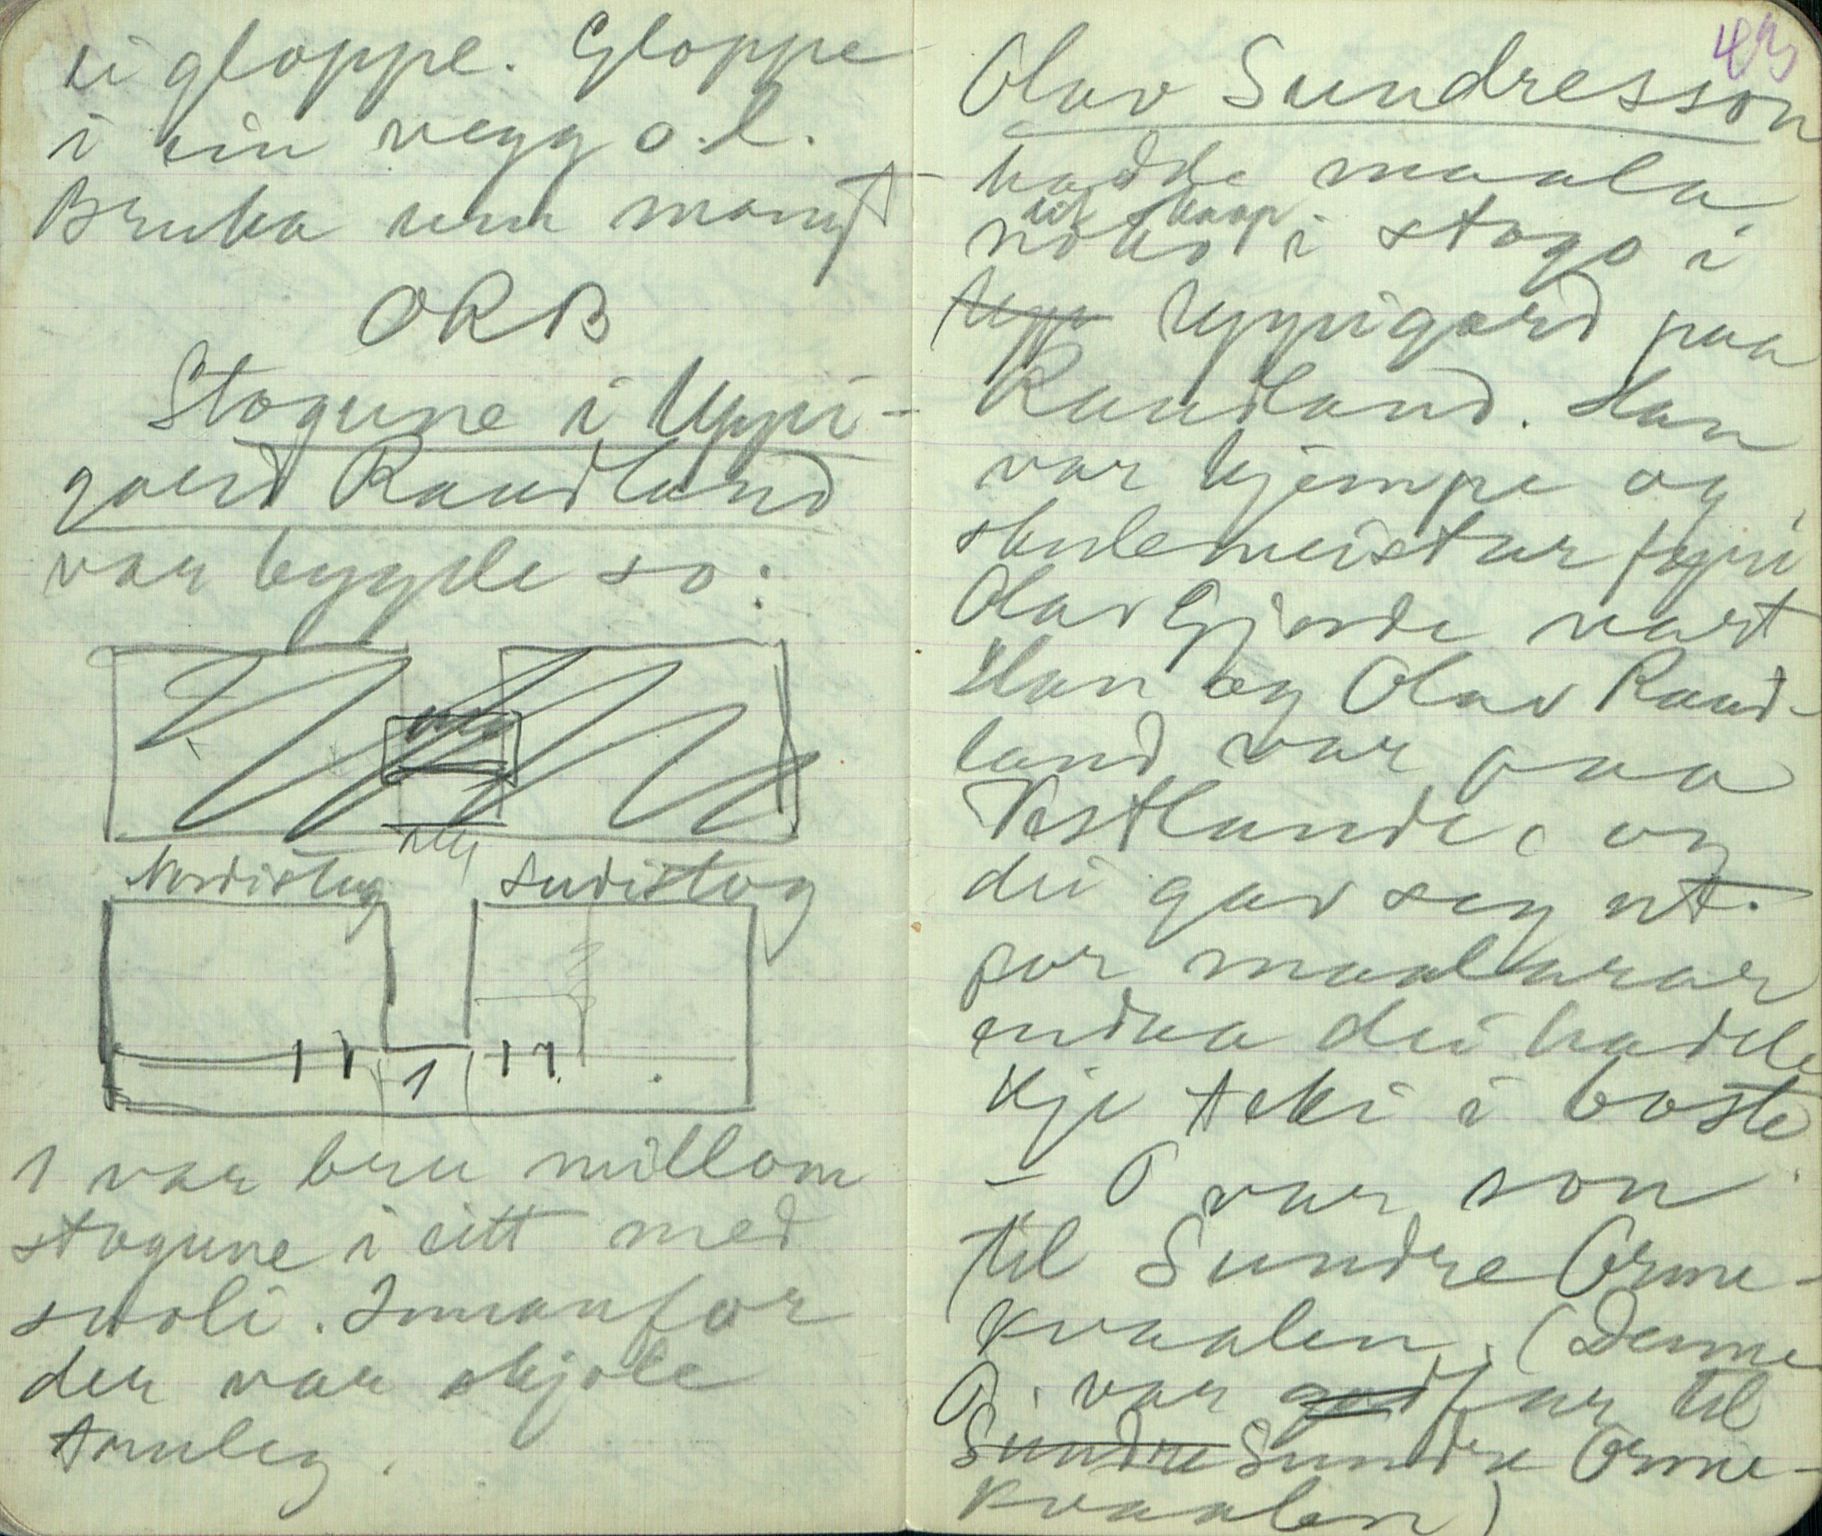 ei gloppe. Gloppe
i ein vegg o.l.
Bruka um mangt
ORB
Stogune i Uppi-
gard Raudland
var bygde so:
Nordistog
Sudistog
1 1 1 1 1
1 var bru millom
stogune i eitt med
svoli. Innanfor
der var skjole
truleg.
49
Olav Sundresson
hadde maala
eit skaap
noko i stogo i
Upp Uppigard paa
Raudland. Han
var kjempe og
skulemeistar fyrr
Olav Gjorde vart
Han og Olav Raud-
land var paa
Vestlande, og
dei gav seg ut
for maalarar
endaa dei hadde
kje teki i boste
– O var son
til Sundre Orme-
kvaalen. (Denne
O. var godfar til
Sundre Sundre Orme-
kvaalen)